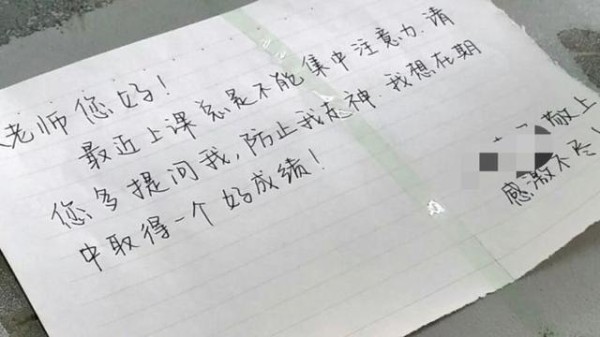 老师您好！
最近上课总是不能集中注意力，请
您多提问我，防止我走神，我想在期
中取得一个好成绩！
敬上
感激不尽！